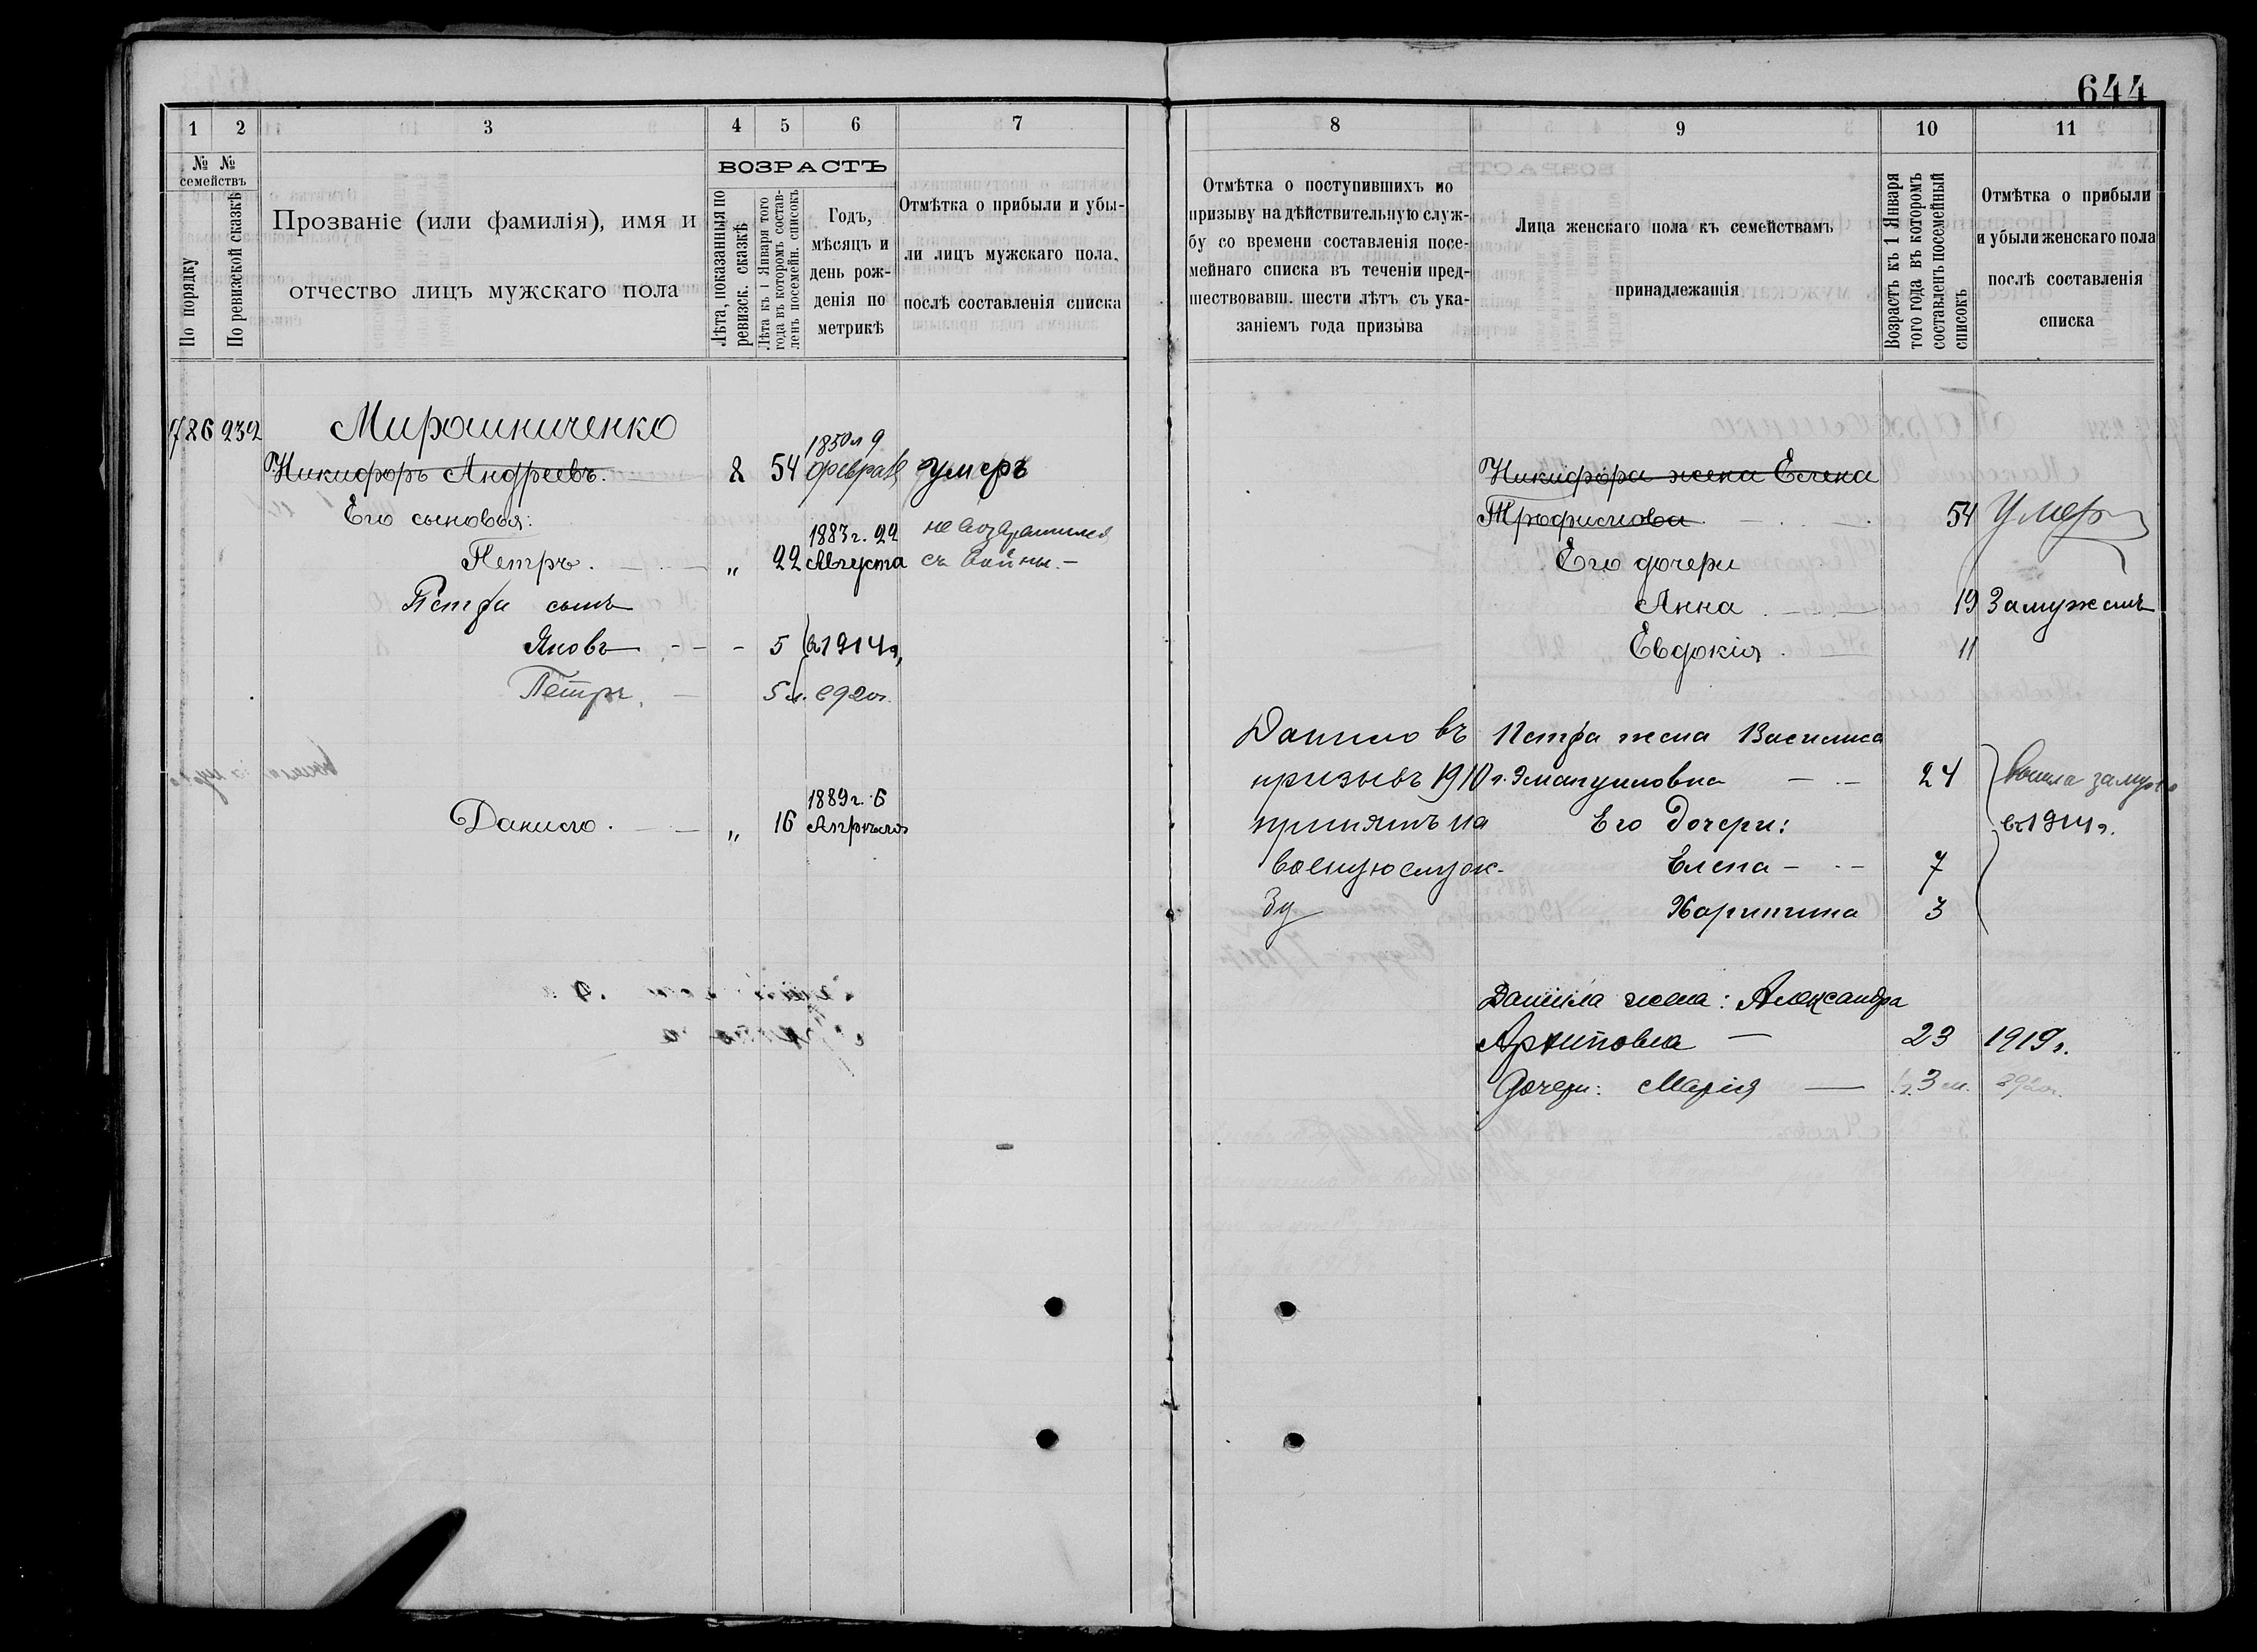 644
1 2 3 4 5 6 7
№ № семействъ
По порядку
По ревизской сказкѣ
Прозваніе (или фамилія), имя и
отчество лицъ мужскаго пола
ВОЗРАСТЪ
Лѣта, показанныя по
ревизск. сказкѣ
Лѣта къ 1 Января того
года въ которомъ состав-
ленъ посемейн. списокъ
Годъ,
мѣсяцъ и
день рож-
денія по
метрикѣ
Отмѣтка о прибыли и убы-
ли лицъ мужскаго пола,
послѣ составленія списка
786 232 Мирошниченко
1850 г 9
Никифоръ Андреевъ. 8 54 февраля умеръ
Его сыновья:
1883 г. 22 не возвратился
Петръ. „ 22 Августа съ войны. —
Петра сынъ
Яковъ - 5 въ 1914 г.
Петръ, 5 л. 1920 г.
1889 г. 6
Данило. „ 16 Апрѣля
8 9 10 11
Отмѣтка о поступившихъ по
призыву на дѣйствительную служ-
бу со времени составленія посе-
мейнаго списка въ теченіи пред-
шествовавш. шести лѣтъ съ ука-
заніемъ года призыва
Лица женскаго пола къ семействамъ
принадлежащія
Возрастъ къ 1 Января
того года въ которомъ
составленъ посемейный
списокъ
Отмѣтка о прибыли
и убыли женскаго пола
послѣ составленія
списка
Никифора жена Елена
Трофимова. 54 Умер
Его дочери
Анна 19 Замужемъ
Евдокія. 11
Данило въ Петра жена Василиса
призывъ 1910 г. Эмануиловна 24 вышла замужъ
принятъ на Его дочери: въ 1914 г.
военную служ- Елена 7
бу Харитина 3
Данила жена: Александра
Архиповна — 23 1919 г.
Дочери: Марія — 3 м. 1920 г.